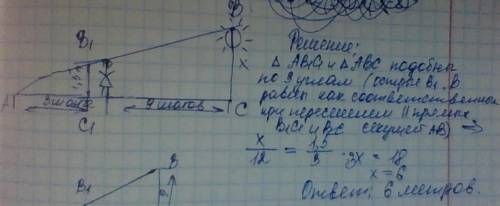 B
B₁
x
1,5
A
3 шага
9 шагов
C
C₁
B
B₁
Решение:
△AB₁C₁ и △ABC подобны
по 3 углам (
B₁, B
равны как соответственные
при пересечении || прямых
B₁C₁ и BC секущей AB) ⇒
x/12 = 1,5/3 3x = 18
x = 6
Ответ: 6 метров.